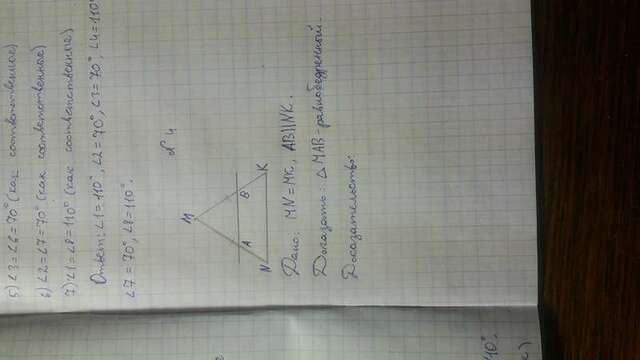 5) ∠3=∠6=70° (как соответственные)
6) ∠2=∠7=70° (как соответственные)
7) ∠1=∠8=110° (как соответственные)
Ответ: ∠1=110°, ∠2=70°, ∠3=70°, ∠4=110°
∠7=70°, ∠8=110°.
№ 4
M
A
B
N
K
Дано: MN=MK, AB||NK.
Доказать: △MAB-равнобедренный.
Доказательство:
110°.